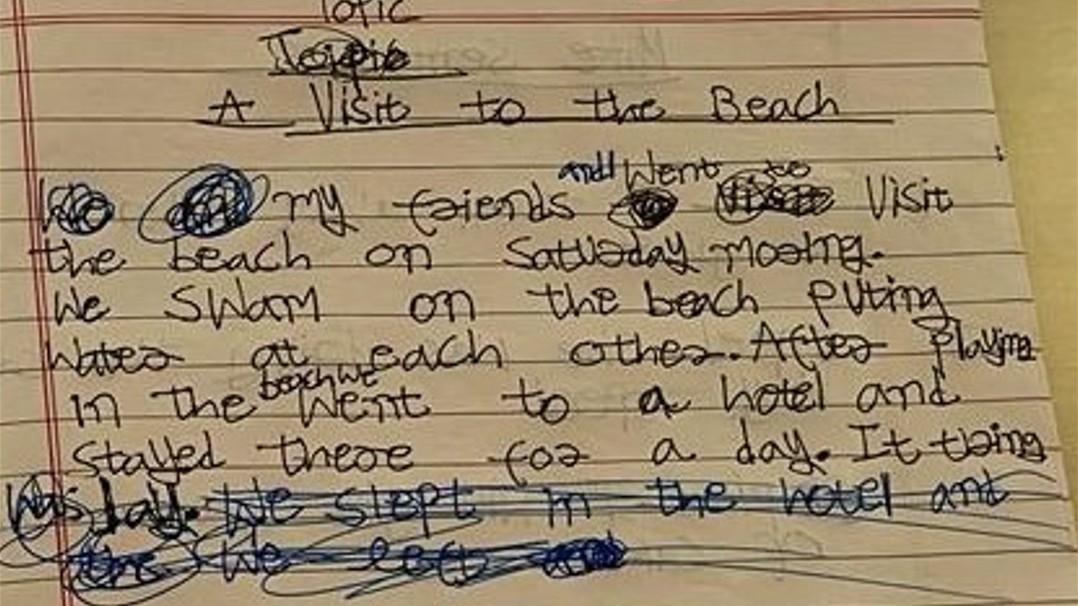 Topic
A Visit to the Beach
my friends and Went to Visit
the beach on Satuaday moaing.
We swam on the beach puting
Water at each other. After Playing
in the beach we Went to a hotel and
Stayed there for a day. It
Was We slept in the hotel and
the We left